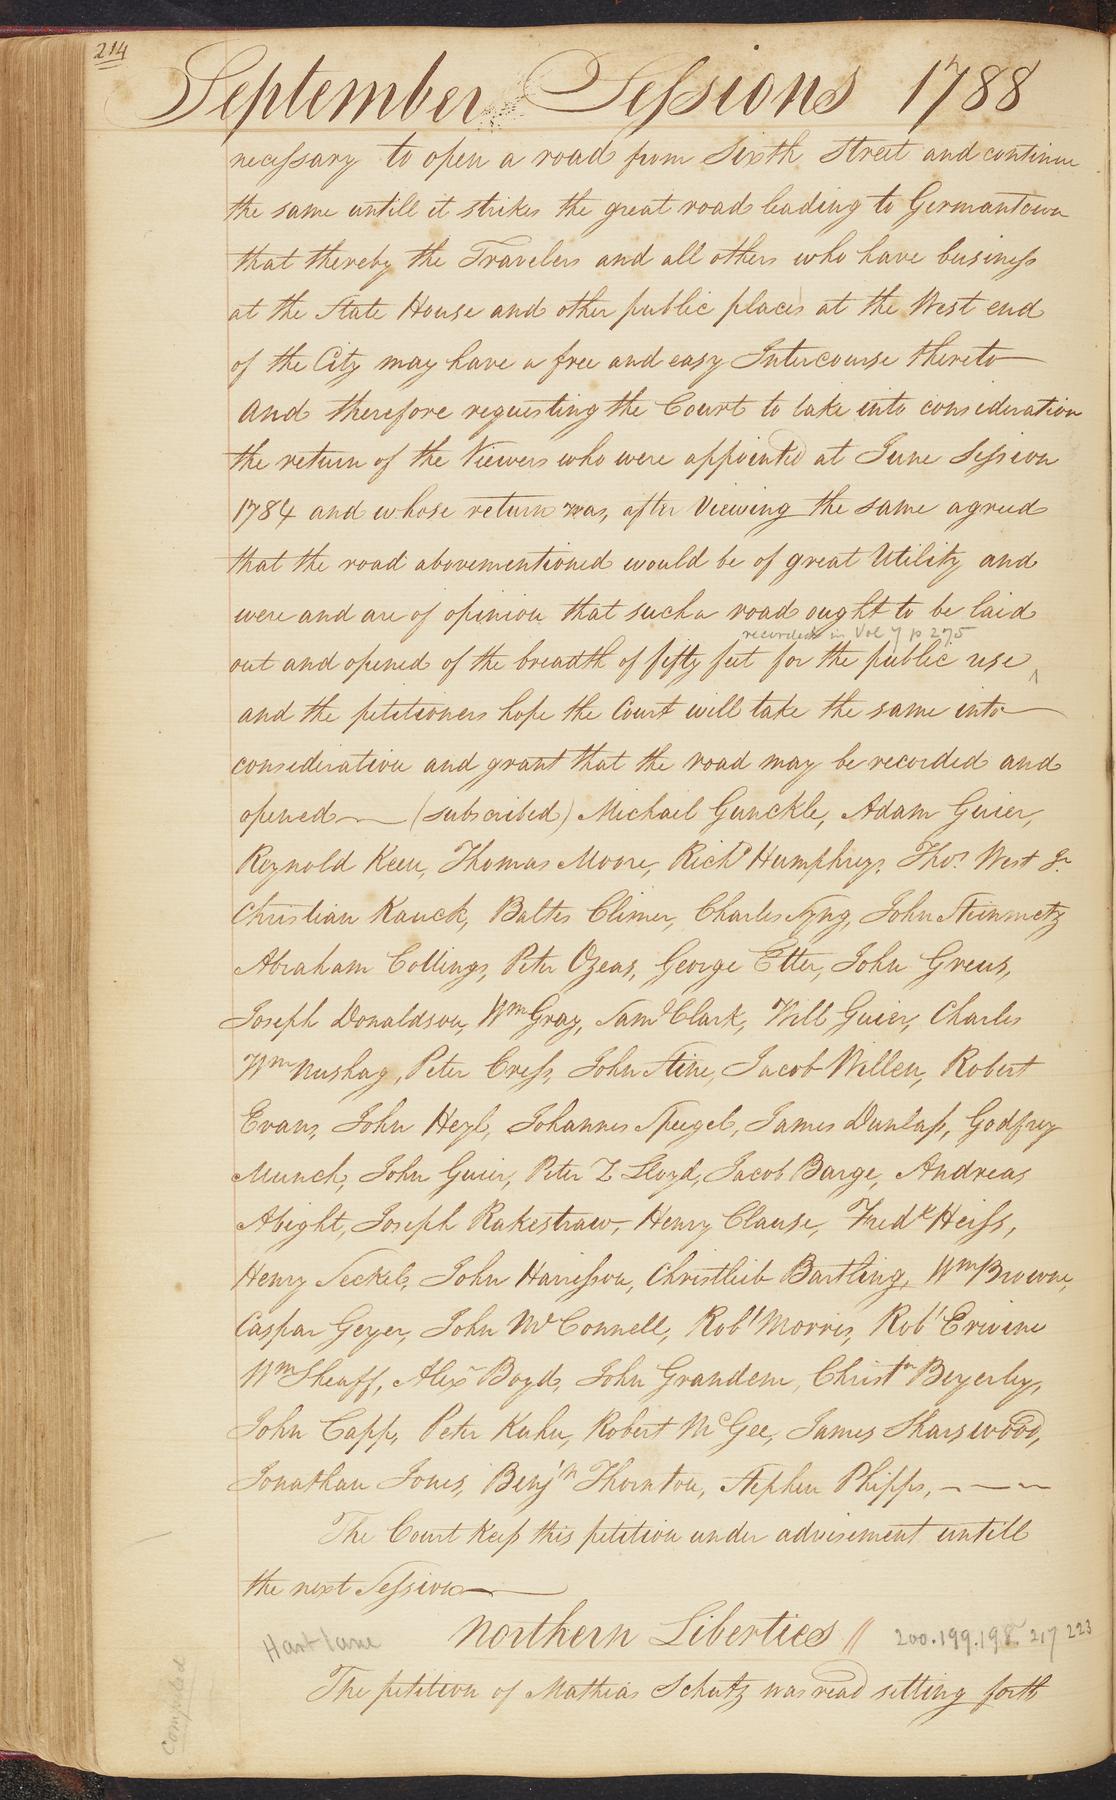 214
September Sessions 1788
necessary to open a road from Sixth Street and continue
the same untill it strikes the great road leading to Germantown
that thereby the Travelers and all others who have business
at the State House and other public places at the West end
of the City may have a free and easy Intercourse thereto
And therefore requesting the Court to take into consideration
the return of the Viewers who were appointed at June Session
1784 and whose return was, after Viewing the same agreed
that the road abovementioned would be of great Utility and
were and are of opinion that such a road ought to be laid
recorded in Vol 7 p 275
out and opened of the breadth of fifty feet for the public use
and the petitioners hope the Court will take the same into
consideration and grant that the road may be recorded and
opened (subscribed) Michael Gunckle, Adam Guier,
Reynold Keen, Thomas Moore, Richd Humphreys, Thos West Jr
Christian Kauck, Baltes Climer, Charles Syng, John Steinmetz
Abraham Collings, Peter Ozeas, George Etter, John Greus,
Joseph Donaldson, Wm Gray, Saml Clark, Will Guier, Charles
Wm Nushag, Peter Cress, John Stine, Jacob Willen, Robert
Evans, John Heyl, Johannes Speegel, James Dunlap, Godfrey
Munch, John Guier, Peter Z Lloyd, Jacob Barge, Andreas
Abight, Joseph Rakestraw, Henry Clause, Fredk Heiss,
Henry Seckel, John Harrisson, Christlieb Bartling, Wm Browne,
Caspar Geyer, John McConnell, Robt Morris, Robt Erwine
Wm Sheaff, Alexr Boyd, John Grandem, Christn Beyerley,
John Capp, Peter Kuhn, Robert McGee, James Sharswood,
Jonathan Jones, Benjn Thornton, Stephen Phipps,
The Court keep this petition under advisement untill
the next Session
Hart lane Northern Liberties // 200.199.198 217 223
The petition of Mathias Schutz was read setting forth
Compld